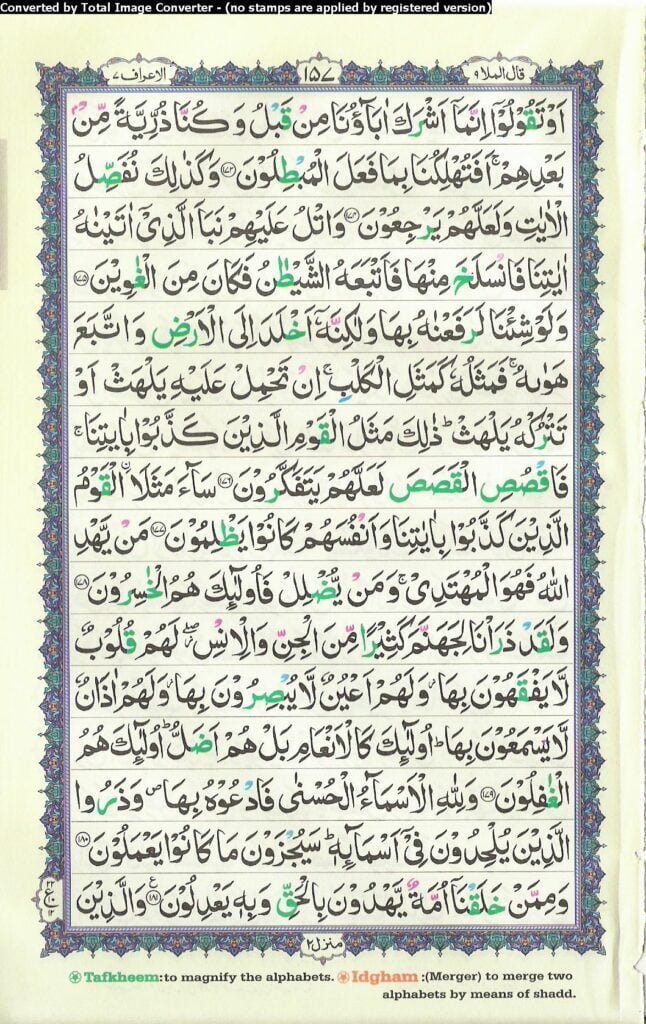 Converted by Total Image Converter - (no stamps are applied by registered version)
قال الملا ٩
١٥٧
الاعراف ٧
اَوْ تَقُوْلُوْۤا اِنَّمَاۤ اَشْرَكَ اٰبَآؤُنَا مِنْ قَبْلُ وَ كُنَّا ذُرِّیَّةً مِّنْۢ
بَعْدِهِمْ ۚ اَفَتُهْلِكُنَا بِمَا فَعَلَ الْمُبْطِلُوْنَ ﴿۱۷۳﴾ وَ كَذٰلِكَ نُفَصِّلُ
الْاٰیٰتِ وَ لَعَلَّهُمْ یَرْجِعُوْنَ ﴿۱۷۴﴾ وَ اتْلُ عَلَیْهِمْ نَبَاَ الَّذِیْۤ اٰتَیْنٰهُ
اٰیٰتِنَا فَانْسَلَخَ مِنْهَا فَاَتْبَعَهُ الشَّیْطٰنُ فَكَانَ مِنَ الْغٰوِیْنَ ﴿۱۷۵﴾
وَ لَوْ شِئْنَا لَرَفَعْنٰهُ بِهَا وَ لٰكِنَّهٗۤ اَخْلَدَ اِلَی الْاَرْضِ وَ اتَّبَعَ
هَوٰىهُ ۚ فَمَثَلُهٗ كَمَثَلِ الْكَلْبِ ۚ اِنْ تَحْمِلْ عَلَیْهِ یَلْهَثْ اَوْ
تَتْرُكْهُ یَلْهَثْ ؕ ذٰلِكَ مَثَلُ الْقَوْمِ الَّذِیْنَ كَذَّبُوْا بِاٰیٰتِنَا ۚ
فَاقْصُصِ الْقَصَصَ لَعَلَّهُمْ یَتَفَكَّرُوْنَ ﴿۱۷۶﴾ سَآءَ مَثَلَا ِ۟الْقَوْمُ
الَّذِیْنَ كَذَّبُوْا بِاٰیٰتِنَا وَ اَنْفُسَهُمْ كَانُوْا یَظْلِمُوْنَ ﴿۱۷۷﴾ مَنْ یَّهْدِ
اللّٰهُ فَهُوَ الْمُهْتَدِیْ ۚ وَ مَنْ یُّضْلِلْ فَاُولٰٓئِكَ هُمُ الْخٰسِرُوْنَ ﴿۱۷۸﴾
وَ لَقَدْ ذَرَاْنَا لِجَهَنَّمَ كَثِیْرًا مِّنَ الْجِنِّ وَ الْاِنْسِ ۖؗ لَهُمْ قُلُوْبٌ
لَّا یَفْقَهُوْنَ بِهَا ؗ وَ لَهُمْ اَعْیُنٌ لَّا یُبْصِرُوْنَ بِهَا ؗ وَ لَهُمْ اٰذَانٌ
لَّا یَسْمَعُوْنَ بِهَا ؕ اُولٰٓئِكَ كَالْاَنْعَامِ بَلْ هُمْ اَضَلُّ ؕ اُولٰٓئِكَ هُمُ
الْغٰفِلُوْنَ ﴿۱۷۹﴾ وَ لِلّٰهِ الْاَسْمَآءُ الْحُسْنٰی فَادْعُوْهُ بِهَا ۪ وَ ذَرُوا
الَّذِیْنَ یُلْحِدُوْنَ فِیْۤ اَسْمَآئِهٖ ؕ سَیُجْزَوْنَ مَا كَانُوْا یَعْمَلُوْنَ ﴿۱۸۰﴾
وَ مِمَّنْ خَلَقْنَاۤ اُمَّةٌ یَّهْدُوْنَ بِالْحَقِّ وَ بِهٖ یَعْدِلُوْنَ ﴿۱۸۱﴾ وَ الَّذِیْنَ
منزل ٢
Tafkheem:to magnify the alphabets. Idgham :(Merger) to merge two
alphabets by means of shadd.